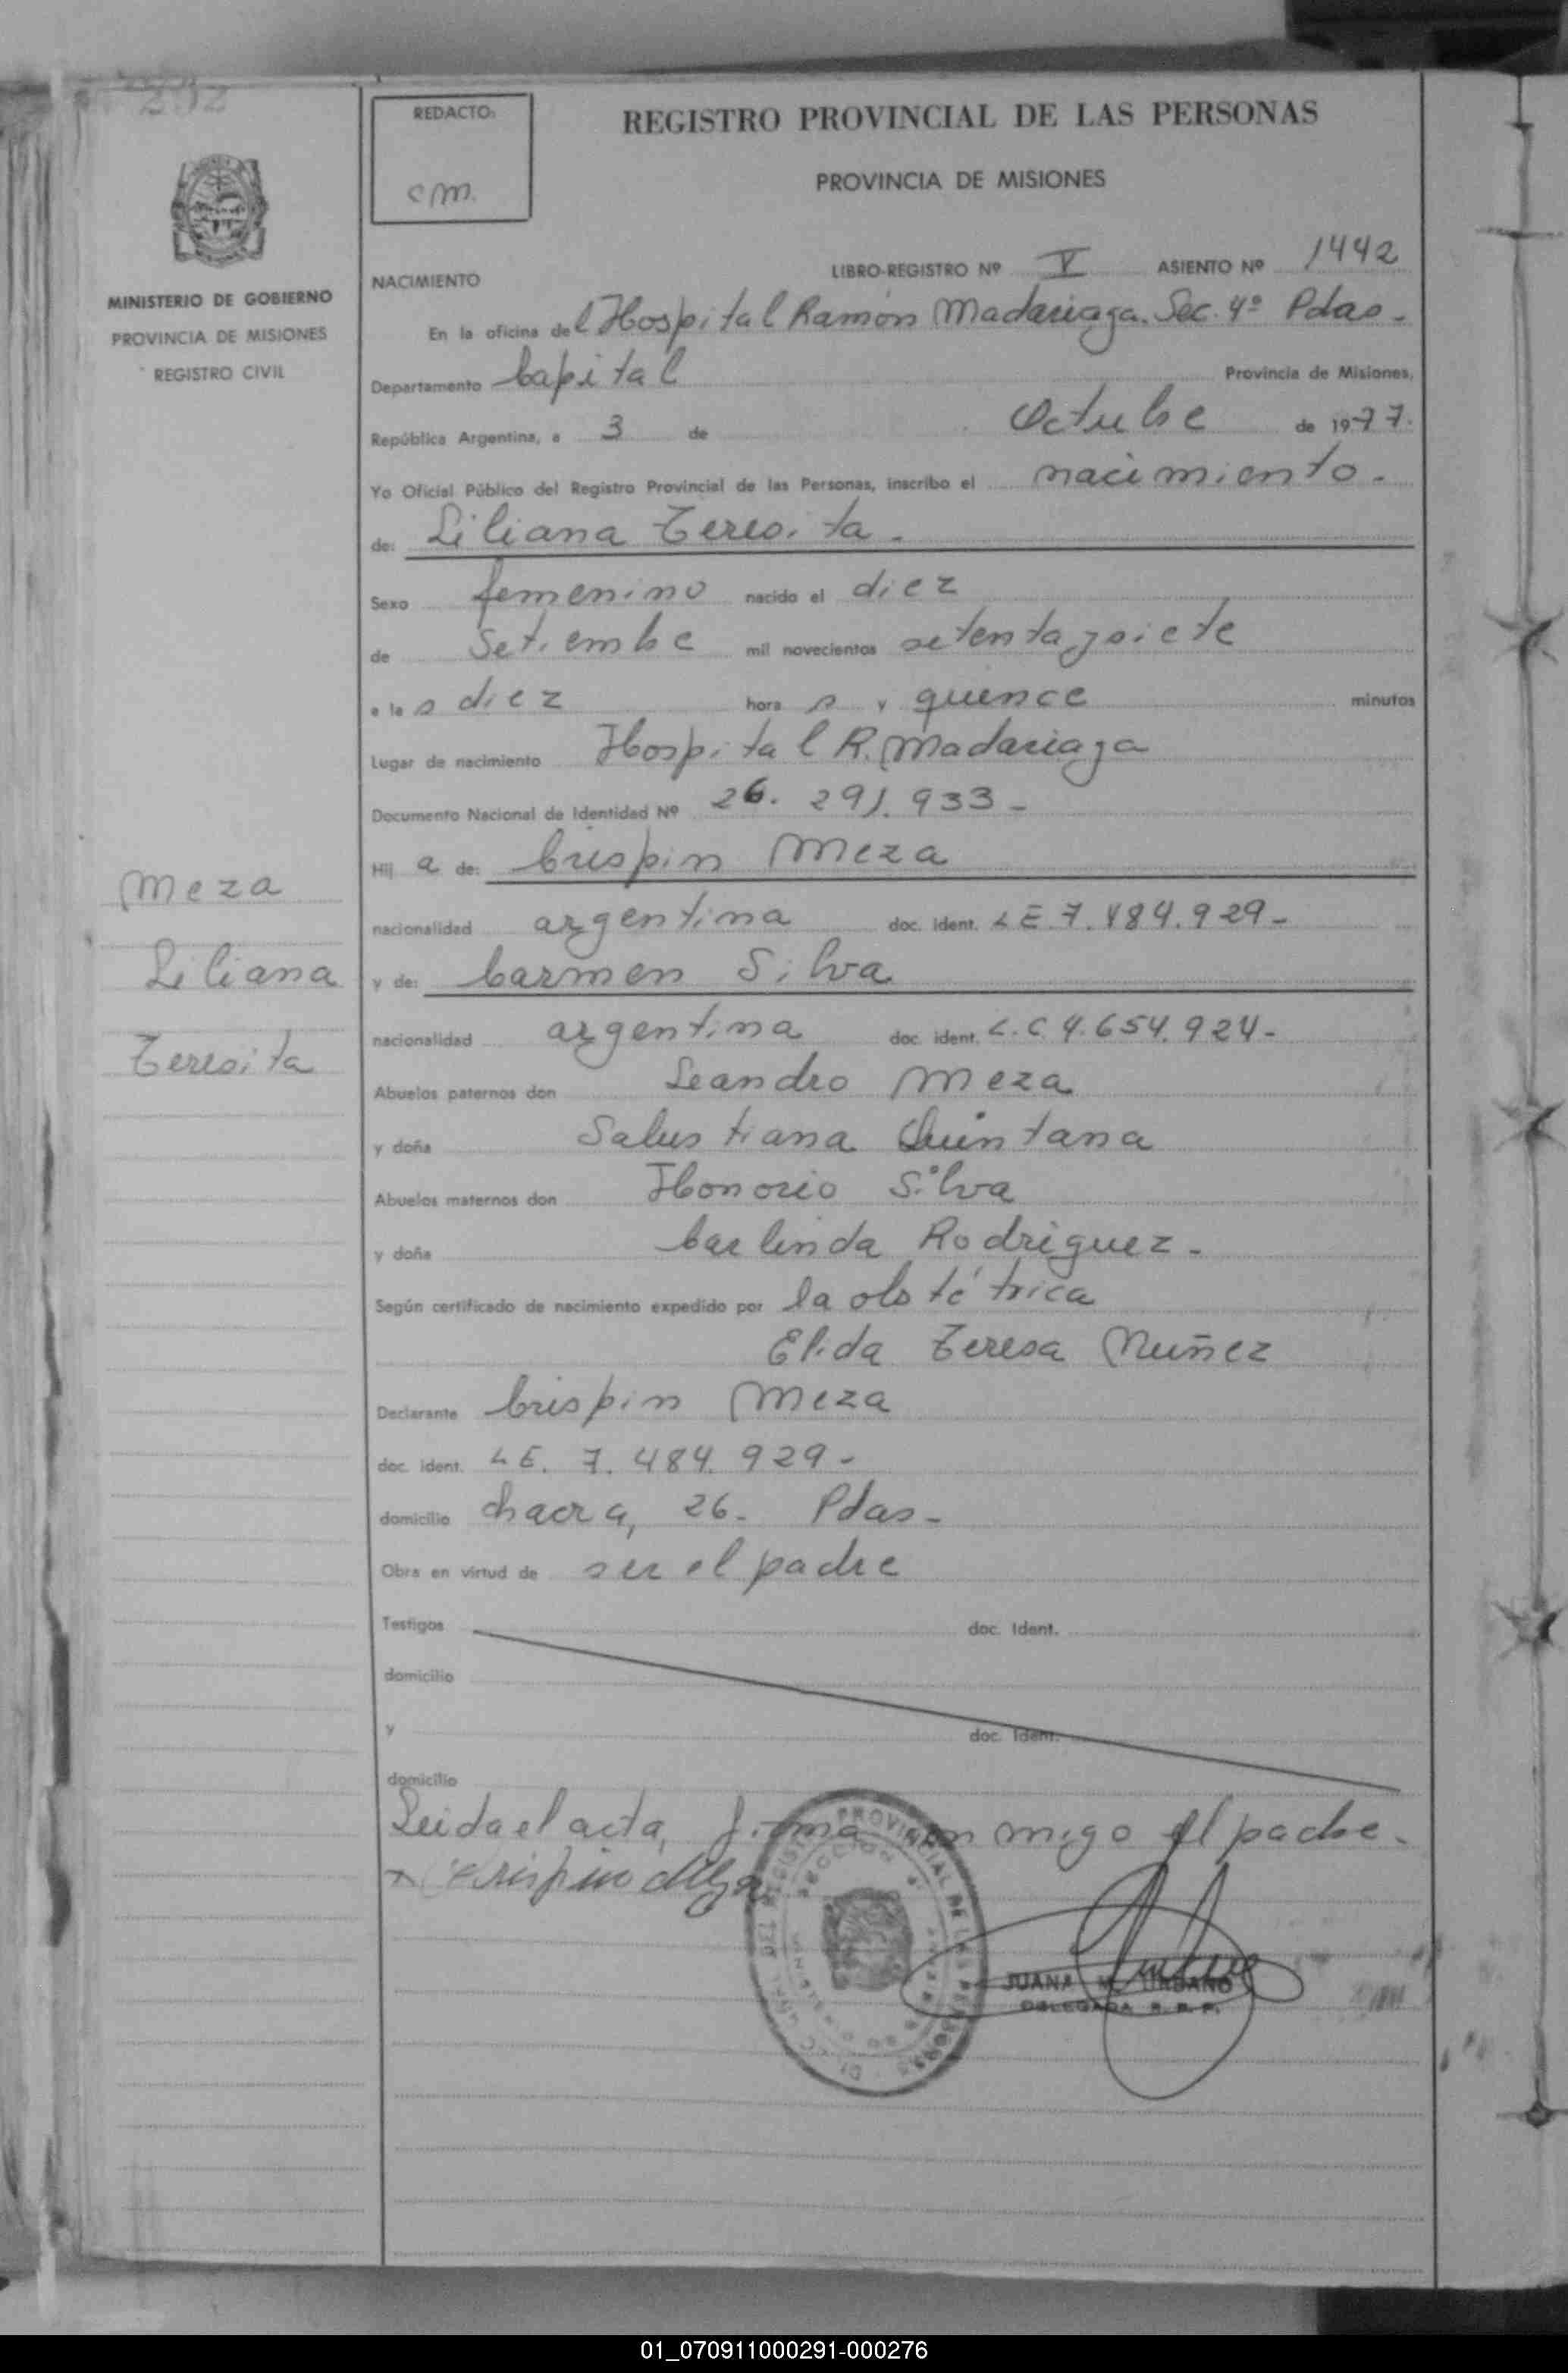 292
REDACTO:
cm.
REGISTRO PROVINCIAL DE LAS PERSONAS
PROVINCIA DE MISIONES
MINISTERIO DE GOBIERNO
PROVINCIA DE MISIONES
REGISTRO CIVIL
NACIMIENTO LIBRO-REGISTRO Nº V ASIENTO Nº 1442
En la oficina del Hospital Ramón Madariaga. Sec. 4º Pdas.
Departamento Capital Provincia de Misiones,
República Argentina, a 3 de Octubre de 1977.
Yo Oficial Público del Registro Provincial de las Personas, inscribo el nacimiento.
de: Liliana Teresita.
Sexo femenino nacido el diez
de Setiembre mil novecientos setenta y siete
a las diez horas y quince minutos
Lugar de nacimiento Hospital R. Madariaga
Documento Nacional de Identidad Nº 26. 291. 933-
Hija de: Crispin Meza
nacionalidad argentina doc. ident. LE 7. 484. 929-
y de: Carmen Silva
nacionalidad argentina doc. ident. L.C 4. 654. 924-
Abuelos paternos don Leandro Meza
y doña Salustiana Quintana
Abuelos maternos don Honorio Silva
y doña Carlinda Rodriguez-
Según certificado de nacimiento expedido por la obstétrica
Elida Teresa Nuñez
Declarante Crispin Meza
doc. ident. LE. 7. 484. 929-
domicilio chacra, 26- Pdas-
Obra en virtud de ser el padre
Testigos doc. ident.
domicilio
y doc. ident.
domicilio
Leida el acta, firma con migo el padre.
x Crispin Meza
JUANA M. URBANO
DELEGADA R. P. P.
Meza
Liliana
Teresita
01_070911000291-000276